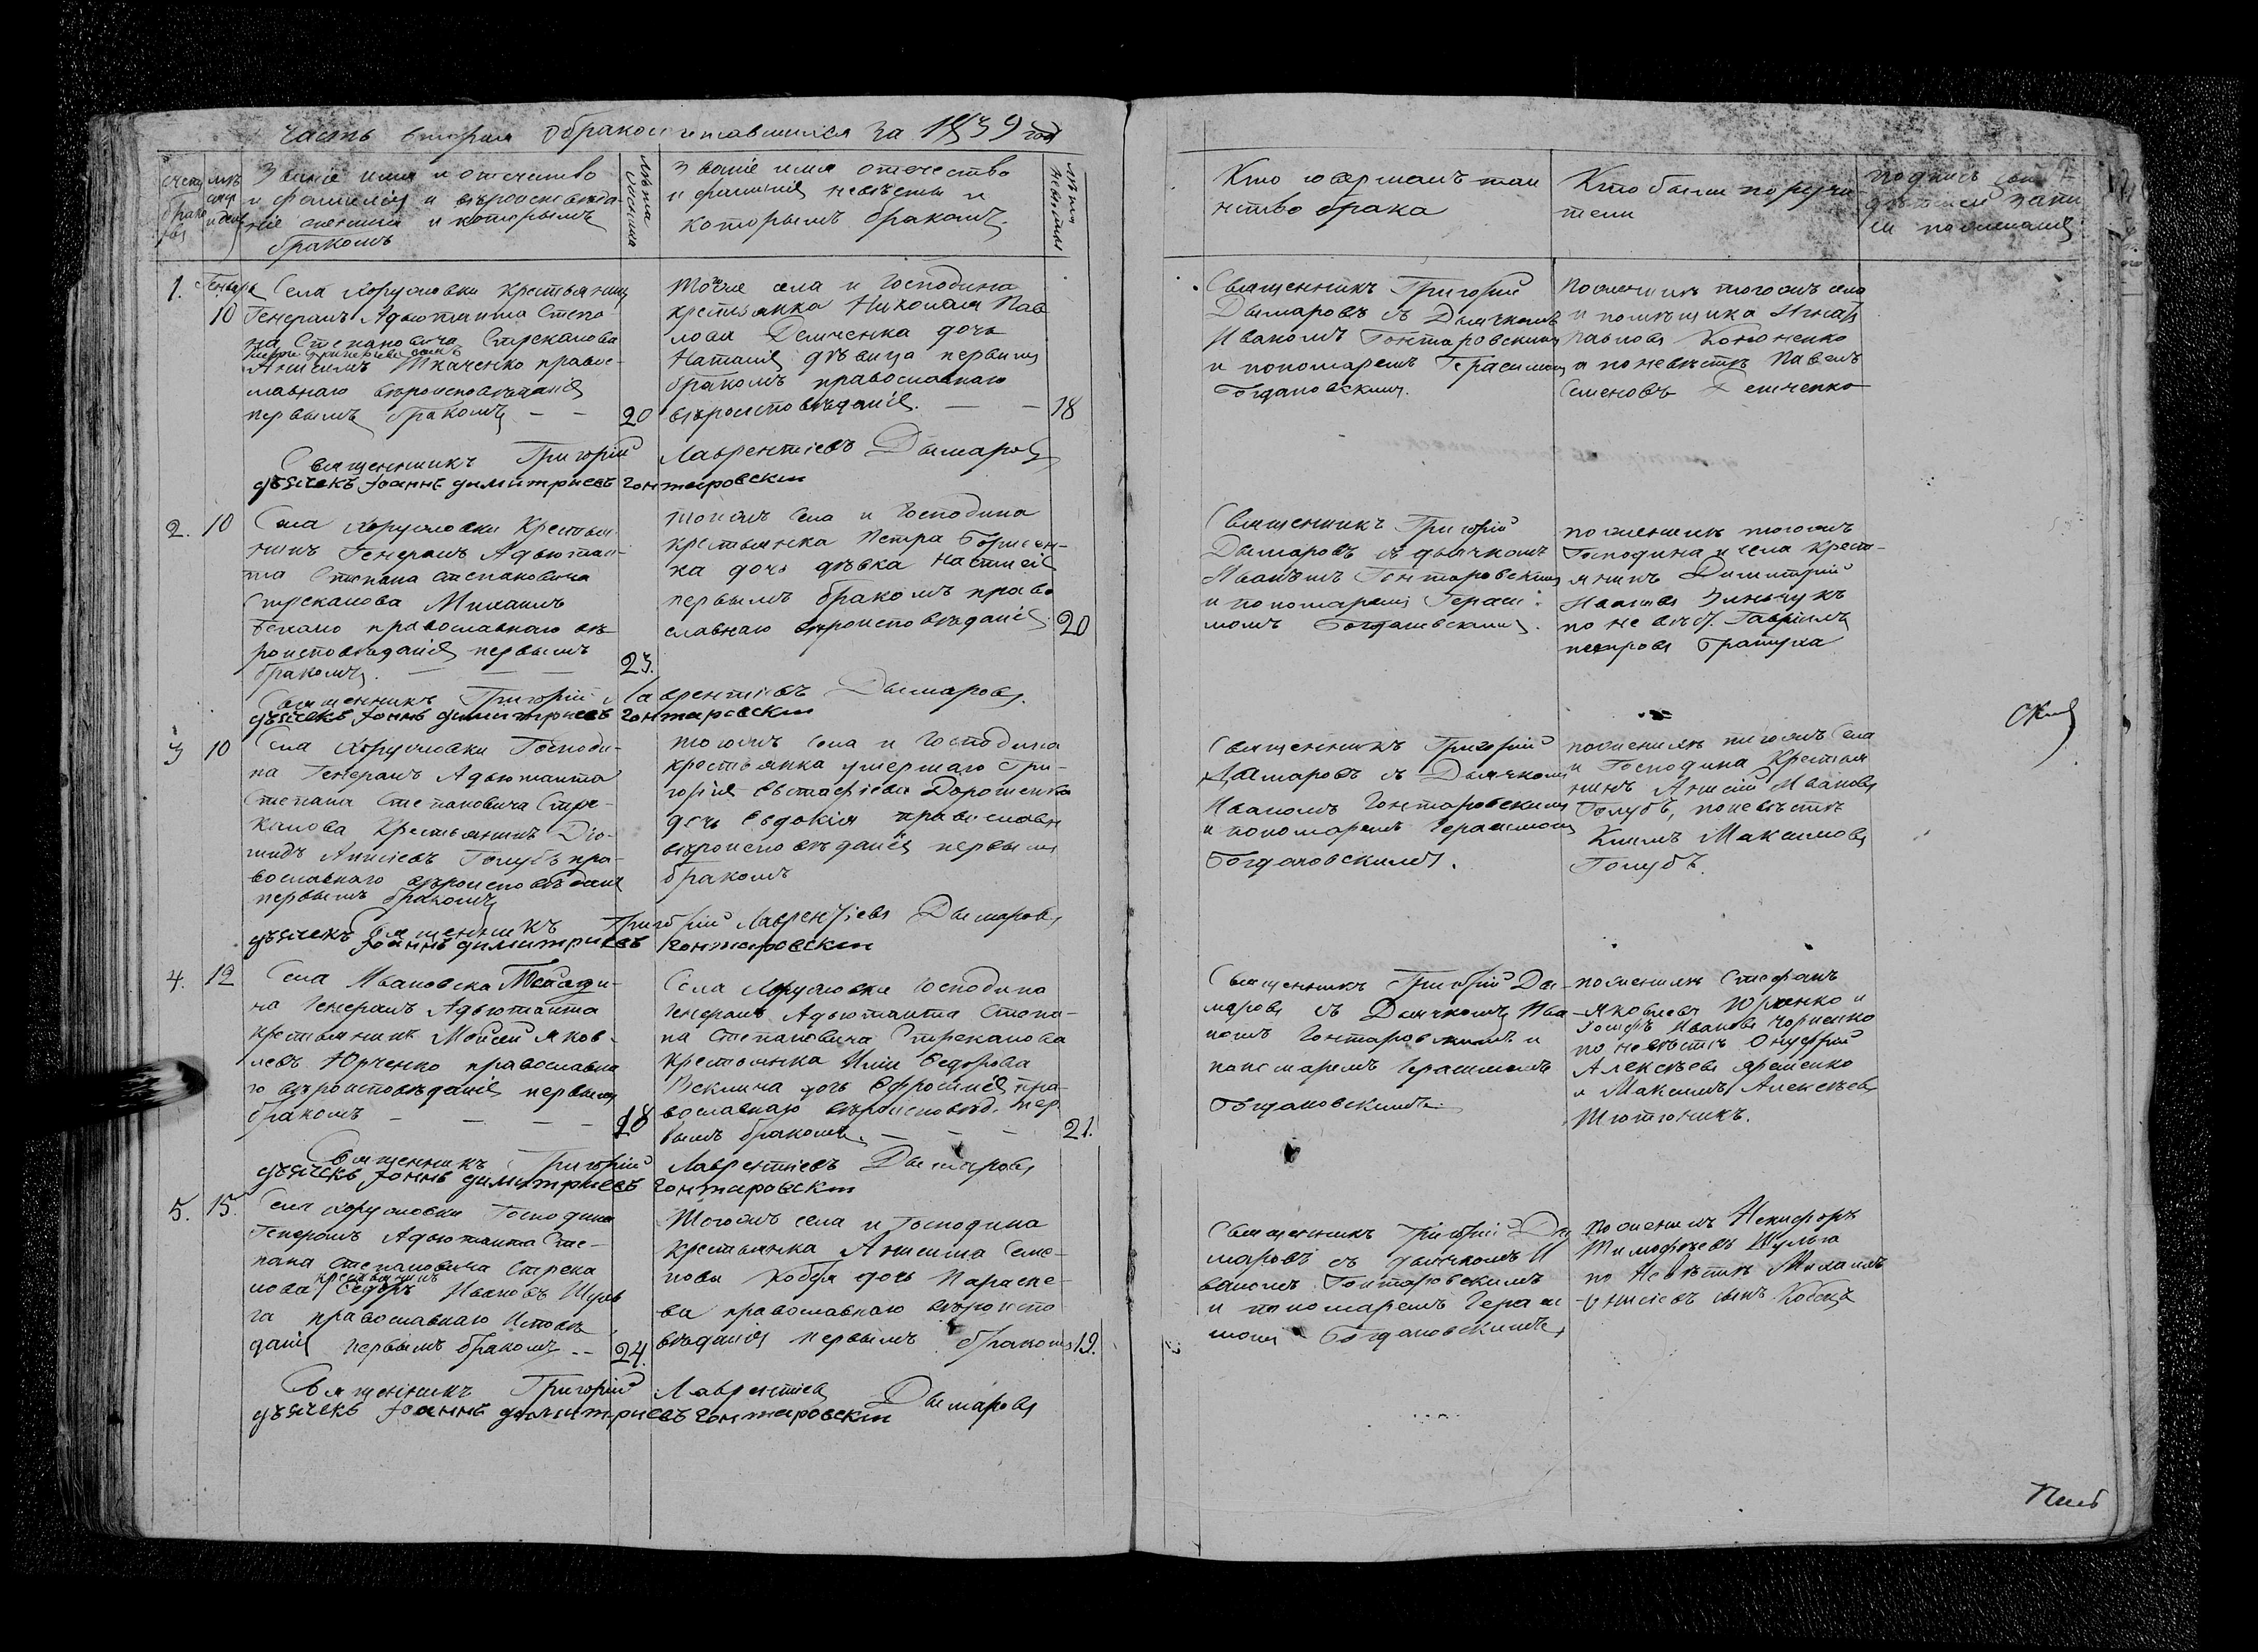 Часть вторая О бракосочетавшихся за 1839 год
Счетъ браковъ
Званіе имя и отечество
и фамилія и вѣроисповѣда-
ніе жениха и которымъ
бракомъ
Лѣта жениха
Званіе имя отечество
и фамилія невѣсты и
которымъ бракомъ
Лѣта невѣсты
Кто совершалъ таи
нство брака
Кто были поручи-
тели
Подпись
записи по желанію
1.
Генваря
10
Села Хоружовки крестьянинъ
Генералъ Адьютанта Степа
на Степановича Стрекалова
Ткаченко правос-
лавнаго вѣроисповѣданія
первымъ бракомъ — —
20
села и Господина
крестьянка Николая Пав
лова Демченка дочь
Наталія дѣвица первымъ
бракомъ православнаго
вѣроисповѣданія. — —
18
Священникъ Григорій
Дымаровъ съ Дьячкомъ
Иваномъ Гонтаровскимъ
и пономаремъ Герасимомъ
Богдановскимъ.
По женихѣ тогожъ села
и помѣщика Игнатъ
Павловъ Кононенко
а по невѣстѣ Павелъ
Семеновъ Демченко
Священникъ Григорій Лаврентіевъ Дымаровъ
дьячекъ Іоаннъ димитриевъ гонтаровскии
2.
10
Села Хоружовки Крестья
нинъ Генералъ Адьютан-
та Степана Степановича
Стрекалова Михаилъ
православнаго вѣ
роисповѣданія первымъ
бракомъ. — — —
23.
тогожъ Села и Господина
крестьянка Петра Борисен-
ка дочь дѣвка Настасія
первымъ бракомъ право
славнаго вѣроисповѣданія.
20
Священникъ Григорій
Дымаровъ съ дьячкомъ
Иваномъ Гонтаровскимъ
и пономаремъ Гераси-
момъ Богдановскимъ.
по женихѣ тогожъ
Господина и села Кресть-
янинъ Димитрій
Ивановъ Зинчукъ
по невѣс. Гавріилъ
петровъ
Священникъ Григорій Лаврентіевъ Дымаровъ
дьячекъ Іоннъ димитриевъ гонтаровскии
3
10
Села Хоружовки Господи-
на Генералъ Адьютанта
Степана Степановича Стре-
калова Крестьянинъ Діо-
мидъ Анисіевъ Голубъ пра-
вославнаго вѣроисповѣданія
первымъ бракомъ
тогожъ села и Господина
крестьянка умершаго Гри-
горія Евстафіева Дорошенка
дочь Евдокія православн
вѣроисповѣданія первымъ
бракомъ
Священникъ Григорій
Дымаровъ съ Дьячкомъ
Иваномъ Гонтаровскимъ
и пономаремъ Герасимомъ
Богдановскимъ.
по женихѣ тогожъ Села
и Господина Крестья
нинъ Анисій Ивановъ
Голубъ, по невѣстѣ
Климъ Максимовъ
Голубъ.
Священникъ Григорій Лаврентіевъ Дымаровъ
дьячекъ Іоаннъ димитриевъ гонтаровскии
4.
12
Села Ивановска Господи-
на Генералъ Адьютанта
крестьянинъ Моисей Яков-
левъ Юрченко православна
го вѣроисповѣданія первымъ
бракомъ — — — —
18
Села Хоружовки Господина
Генералъ Адьютанта Степа-
на Степановича Стрекалова
крестьянка Иліи Федорова
дочь Ефросинія пра-
вославнаго вѣроисповѣд. пер
вымъ бракомъ. — — —
21.
Священникъ Григорій Ды-
маровъ съ Дьячкомъ Ива-
номъ Гонтаровскимъ и
пономаремъ Герасимомъ
Богдановскимъ
по женихѣ Стефанъ
Яковлевъ Юрченко и
Іосифъ Ивановъ Чорненко
по невѣстѣ Онуфрій
Алексѣевъ Яременко
и Максимъ Алексѣевъ
Тютюникъ.
Священникъ Григорій Лаврентіевъ Дымаровъ
дьячекъ Іоннъ димитриевъ гонтаровскии
5.
15.
Села Хоружовки Господина
Генералъ Адьютанта Сте-
пана Степановича Стрека
лова крестьянинъ Ѳедоръ Ивановъ Шуль
га православнаго Исповѣ
данія первымъ бракомъ --
24.
Тогожъ села и Господина
крестьянка Анисима Семе-
нова Кобця дочь Параске-
ва православнаго вѣроиспо
вѣданія первымъ бракомъ
19.
Священникъ Григорій Ды
маровъ съ дьячкомъ И
ваномъ Гонтаровскимъ
и пономаремъ Гераси
момъ Богдановскимъ
По женихѣ Никифоръ
Тимофѣевъ Шульга
по Невѣстѣ Михаилъ
сынъ Кобецъ
Священникъ Григорій Лаврентіевъ Дымаровъ
дьячекъ Іоаннъ димитриевъ гонтаровскии